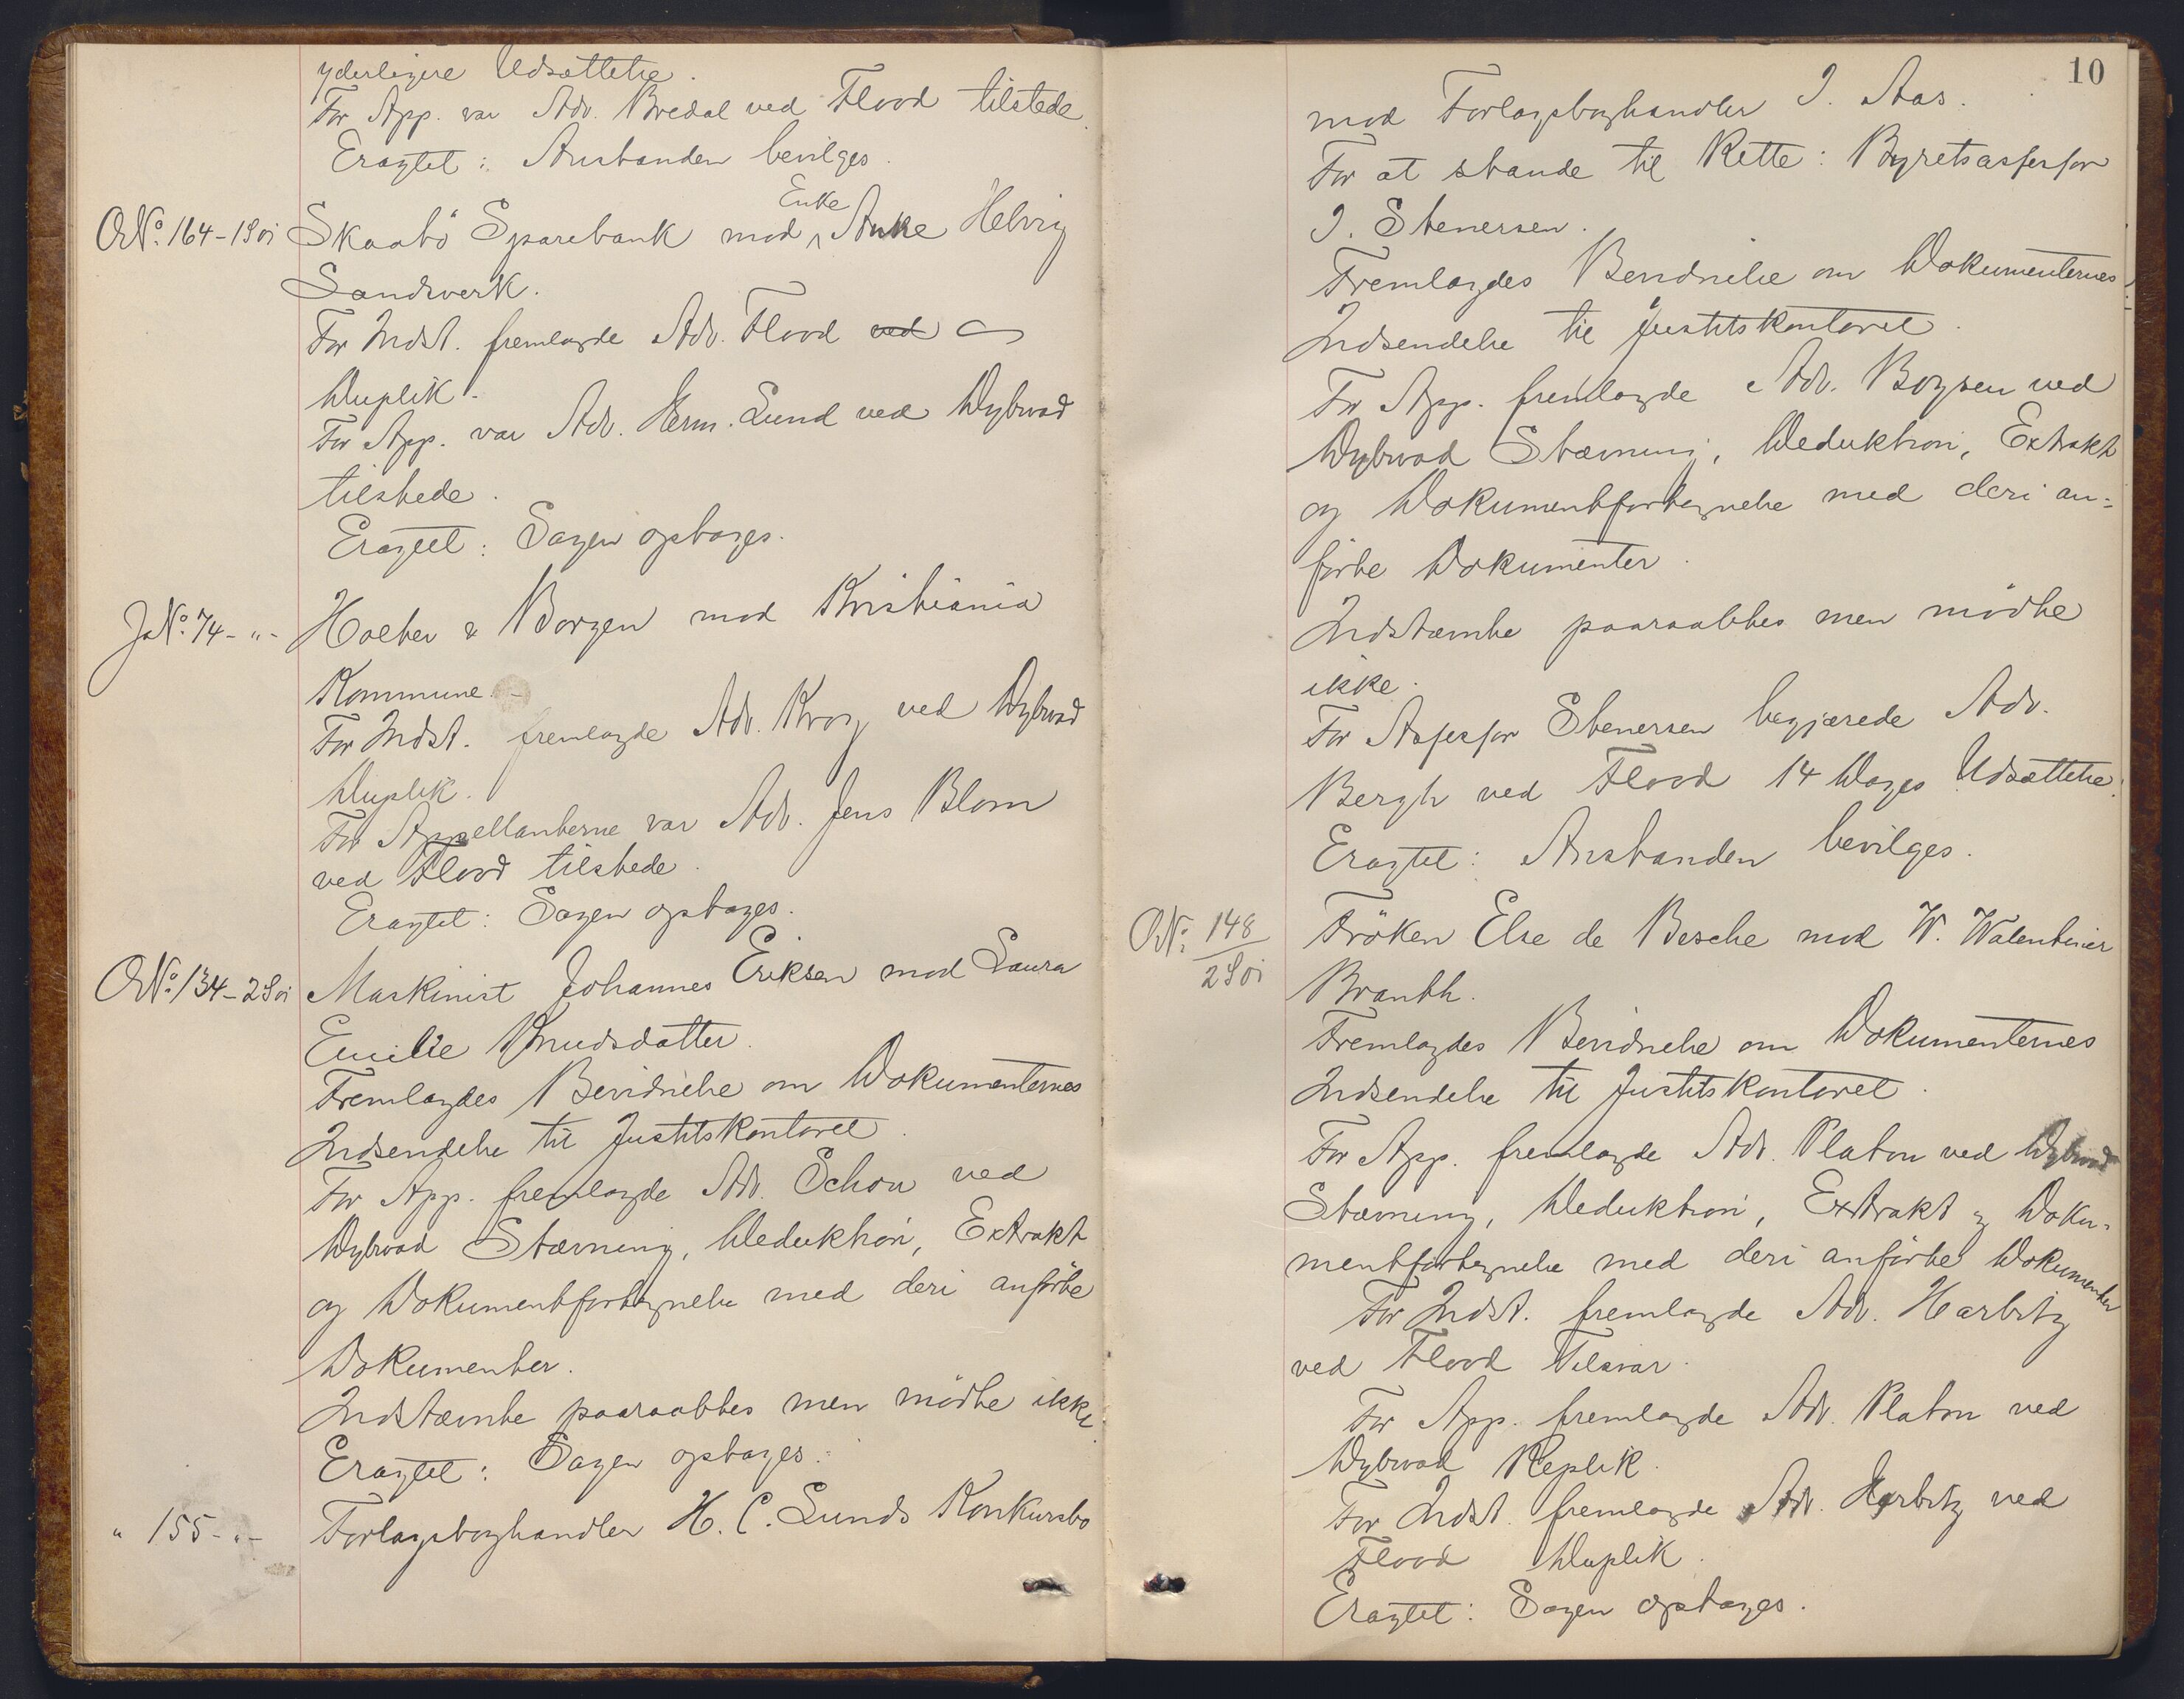 yderligere Udsættelse.
For App. var Adv. Bredal ved Flood tilstede.
Eragtet: Anstanden bevilges.
O No. 164-1901 Skaabö Sparebank mod Enke Anke Helvig
Sandsverk.
For Indst. fremlagde Adv. Flood ved
Duplik.
For App. var Adv. Herm. Lund ved Dybwad
tilstede.
Eragtet: Sagen optages.
J No. 74-"- Hoelter & Borgen mod Kristiania
Kommune.
For Indst. fremlagde Adv. Krog ved Dybwad
Duplik.
For Appellanterne var Adv. Jens Blom
ved Flood tilstede.
Eragtet: Sagen optages.
O No. 134-2901 Maskinist Johannes Eriksen mod Laura
Emilie Knudsdatter.
Fremlagdes Bevidnelse om Dokumenternes
Indsendelse til Justitskontoret.
For App. fremlagde Adv. Schou ved
Dybwad Stævning, Deduktion, Extrakt
og Dokumentfortegnelse med deri anförte
Dokumenter.
Indstævnte paaraabtes men mödte ikke
Eragtet: Sagen optages.
" 155-"- Forlagsboghandler H. C. Lunds Konkursbo
10
mod Forlagsboghandler I. Aas.
For at stande til Rette: Byretsassessor
I. Stenersen.
Fremlagdes Bevidnelse om Dokumenternes
Indsendelse til Justitskontoret.
For App. fremlagde Adv. Boysen ved
Dybwad Stævning, Deduktion, Extrakt
og Dokumentfortegnelse med deri an-
förte Dokumenter.
Indstævnte paaraabtes men mödte
ikke.
For Assessor Stenersen begjærede Adv.
Bergh ved Flood 14 Dages Udsættelse.
Eragtet: Anstanden bevilges.
O No. 148/2901 Fröken Else de Besche mod W. Walentiner
Branth.
Fremlagdes Bevidnelse om Dokumenternes
Indsendelse til Justitskontoret.
For App. fremlagde Adv. Platou ved Dybwad
Stævning, Deduktion, Extrakt og Doku-
mentfortegnelse med deri anförte Dokumenter
For Indst. fremlagde Adv. Harbitz
ved Flood Tilsvar.
For App. fremlagde Adv. Platou ved
Dybwad Replik.
For Indst. fremlagde Adv. Harbitz ved
Flood Duplik.
Eragtet: Sagen optages.